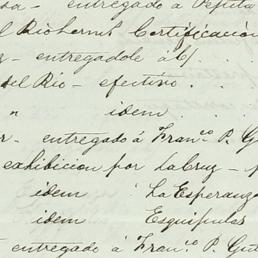 da - entregado à Pepita
l Riohornos Certificación
z - entregadole à c/
del Rio - efectivo.
" idem
r - entregado á Fran.co P. Gu
exhibicion por La Cruz - p
idem La Esperanza
idem Esquipulas
entregado á Fran.co P. Gui